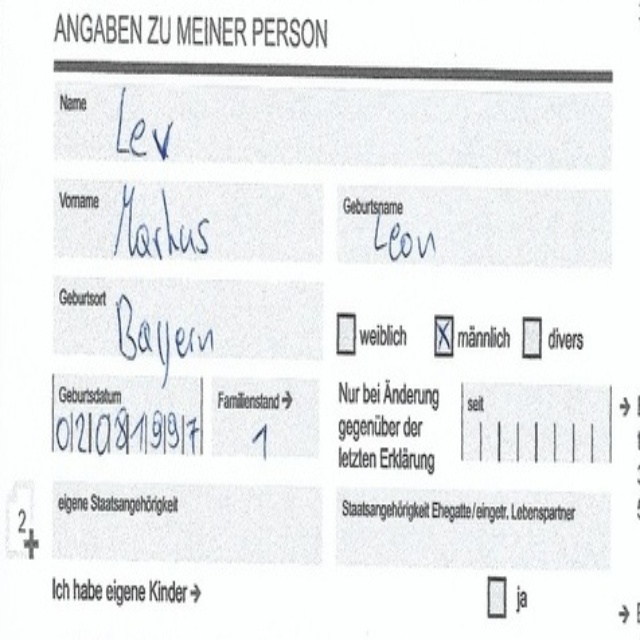 ANGABEN ZU MEINER PERSON
Name
Lev
Vorname
Markus
Geburtsname
Leon
Geburtsort
Bayern
weiblich
männlich
divers
Geburtsdatum
02081997
Familienstand →
1
Nur bei Änderung
gegenüber der
letzten Erklärung
seit
eigene Staatsangehörigkeit
Staatsangehörigkeit Ehegatte/eingetr. Lebenspartner
2
Ich habe eigene Kinder →
ja